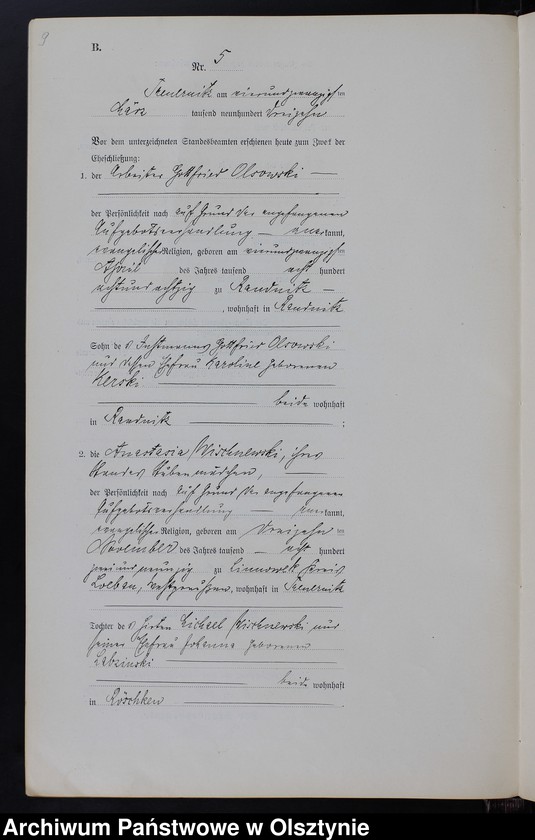 9
B.
Nr. 5
am vierundzwanzigsten
März tausend neunhundert dreizehn
Vor dem unterzeichneten Standesbeamten erschienen heute zum Zweck der
Eheschließung:
1. der Arbeiter Gottfried Olsowski
der Persönlichkeit nach auf Grund der
Aufgebotsverhandlung anerkannt,
evangelischer Religion, geboren am vierundzwanzigsten
April des Jahres tausend acht hundert
achtundachtzig zu Raudnitz
, wohnhaft in Raudnitz
Sohn des Instmanns Gottfried Olsowski
und dessen Ehefrau Karoline geborenen
Kerski
beide wohnhaft
in Raudnitz ;
2. die Anastasia Wischnewski, ihres
Standes Stubenmädchen,
der Persönlichkeit nach auf Grund der
Aufgebotsverhandlung anerkannt,
evangelischer Religion, geboren am dreizehnten
November des Jahres tausend acht hundert
zweiundneunzig zu Linnowitz Kreis
Loebau, Westpreußen, wohnhaft in
Tochter des Hirten Michael Wischnewski und
seiner Ehefrau Johanna geborenen
beide wohnhaft
in Röschken .
Archiwum Państwowe w Olsztynie